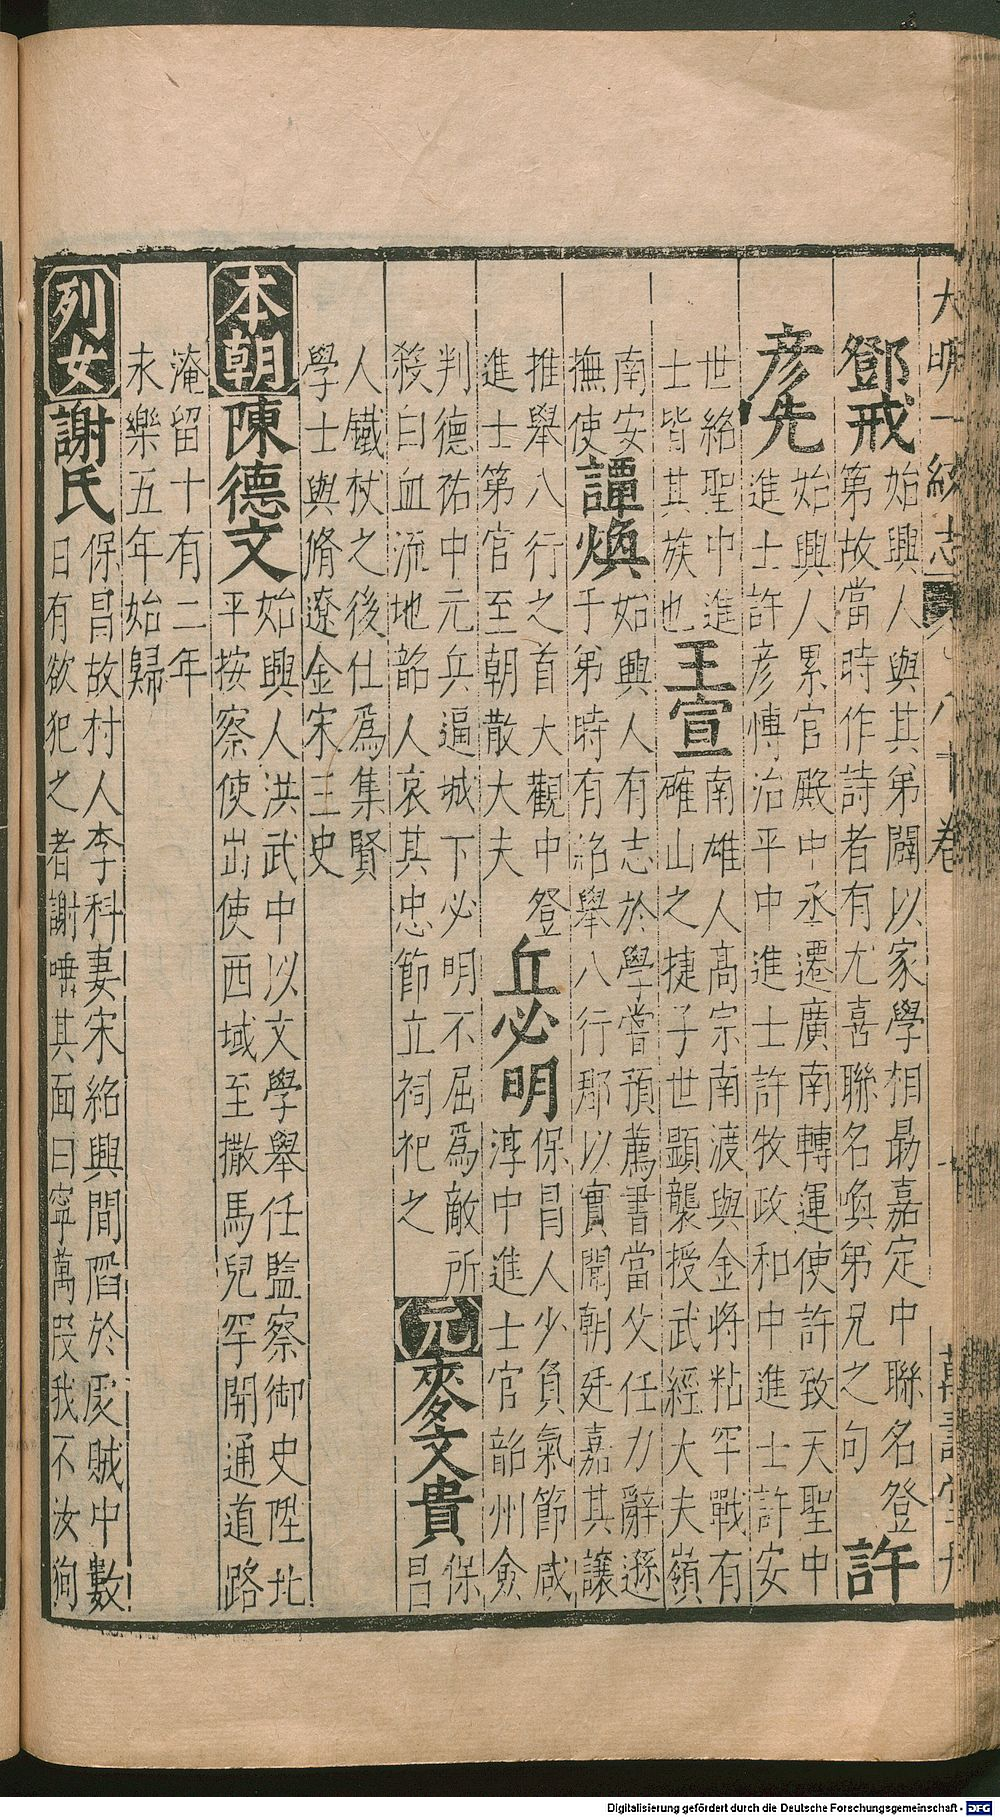 大明一統志 八十卷
鄧戒 始興人與其弟闢以家學相勗嘉定中聯名登
第故當時作詩者有尤喜聯名喚弟兄之句 許
彦先 始興人累官殿中丞遷廣南轉運使許致天聖中
進士許彦博治平中進士許牧政和中進士許安
世紹聖中進
士皆其族也 王宣 南雄人高宗南渡與金將粘罕戰有
確山之捷子世顕襲授武經大夫嶺
南安
撫使 譚煥 始興人有志於學嘗預薦書當父任力辭遜
于弟時有詔舉八行郡以實聞朝廷嘉其讓
推舉八行之首大觀中登
進士第官至朝散大夫 丘必明 保昌人少負氣節咸
淳中進士官韶州僉
判德祐中元兵逼城下必明不屈為敵所
殺白血流地韶人哀其忠節立祠祀之 元 麥文貴 保
昌
人鐵杖之後仕爲集賢
學士與脩遼金宋三史
本朝 陳德文 始興人洪武中以文學舉任監察御史陞北
平按察使出使西域至撒馬兒罕開通道路
淹留十有二年
永樂五年始歸
列女 謝氏 保昌故村人李科妻宋紹興間陷於虔賊中數
日有欲犯之者謝唾其面曰寧萬段我不汝徇
Digitalisierung gefördert durch die Deutsche Forschungsgemeinschaft - DFG